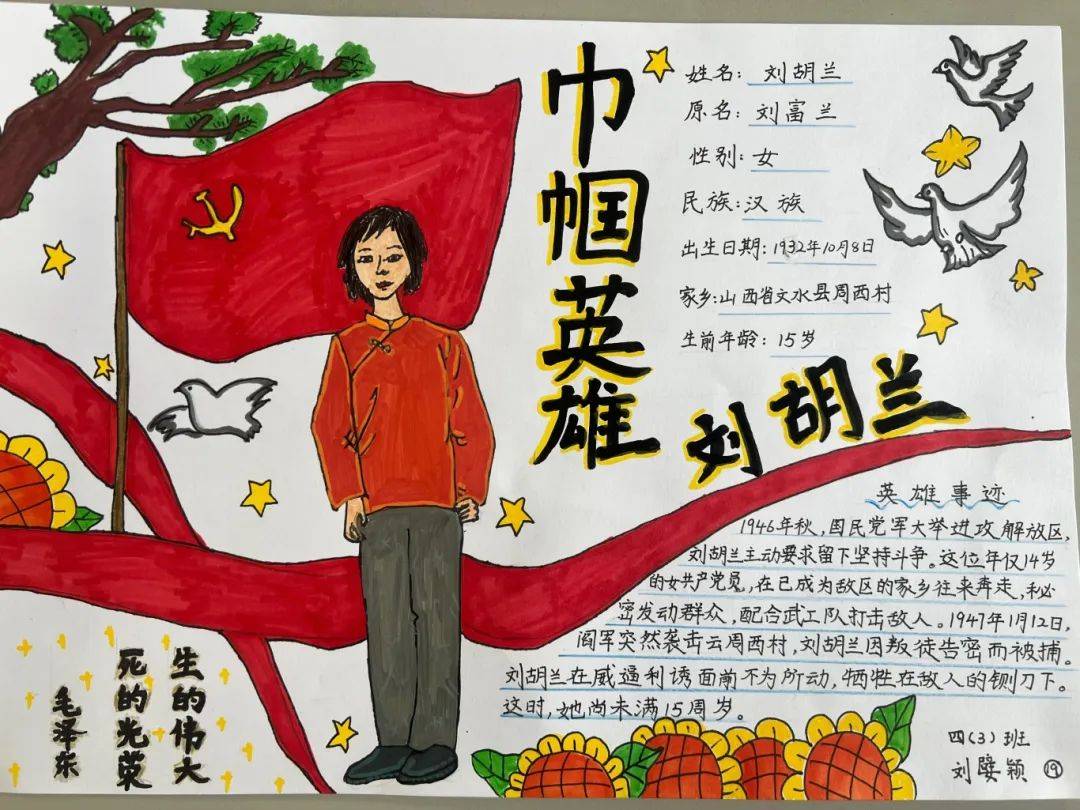 巾帼英雄
刘胡兰
姓名：刘胡兰
原名：刘富兰
性别：女
民族：汉族
出生日期：1932年10月8日
家乡：山西省文水县周西村
生前年龄：15岁
英雄事迹
1946年秋，国民党军大举进攻解放区，
刘胡兰主动要求留下坚持斗争。这位年仅14岁
的女共产党员，在已成为敌区的家乡往来奔走，秘
密发动群众，配合武工队打击敌人。1947年1月12日，
阎军突然袭击云周西村，刘胡兰因叛徒告密而被捕。
刘胡兰在威逼利诱面前不为所动，牺牲在敌人的铡刀下。
这时，她尚未满15周岁。
生的伟大
死的光荣
毛泽东
四(3)班
刘 颖 19